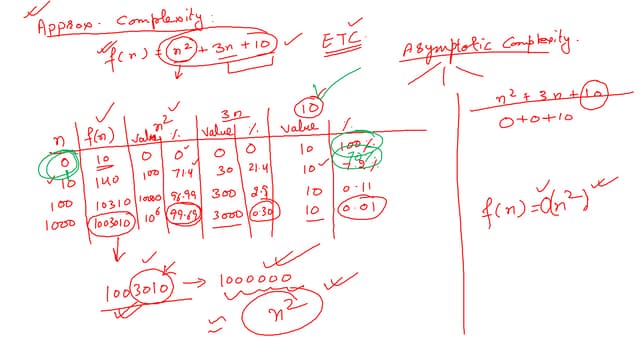 Approx. Complexity:
f(n) = n² + 3n + 10
ETC.
Asymptotic Complexity.
n² + 3n + 10
0+0+10
f(n) = O(n²)
n² 3n 10
n f(n) value % value % value %
0 10 0 0 0 0 10 100%
10 140 100 71.4 30 21.4 10
100 10310 10000 96.99 300 2.9 10 0.11
1000 1003010 10⁶ 99.69 3000 0.30 10 0.01
1003010 → 1000000
≈ n²